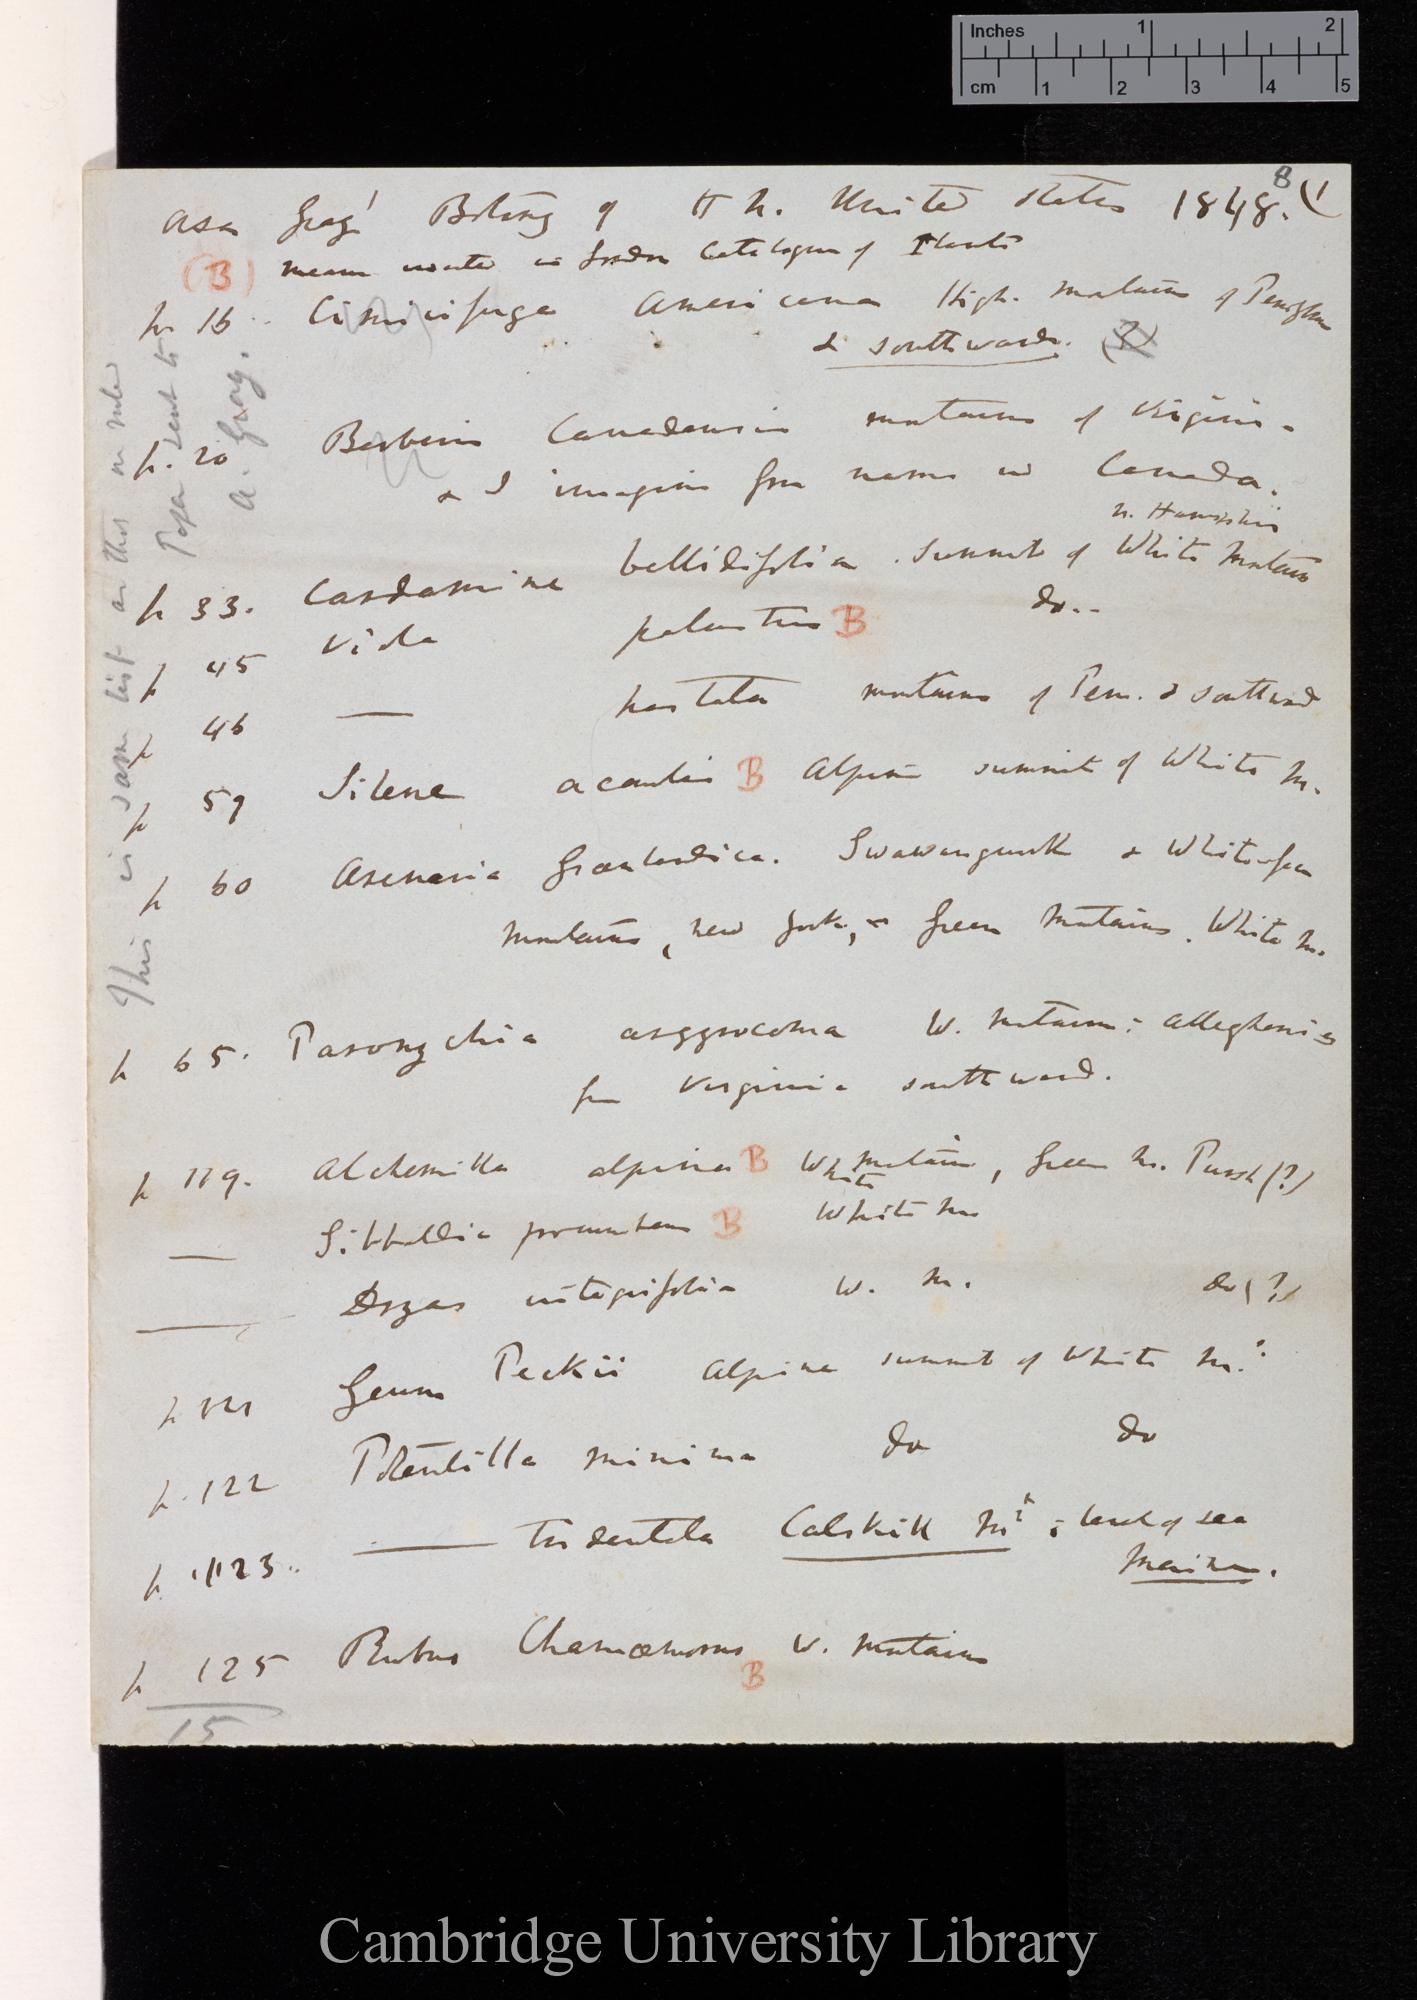 Inches 1 2
cm 1 2 3 4 5
8
Asa Gray' Botany of N. United States 1848. (1
(B) means marked in London Catalogue of Plants
p 16. Cimicifuga Americana High. mountains of Pensylv
& southwards. (?)
p. 20 Berberis Canadensis mountains of Virginia
& I imagine from name in Canada.
N. Hampshire
p 33. Cardamine bellidifolia. Summit of White Mountains
p 45 Viola palustris B do..
p 46 — hastata mountains of Penn. & southward
p 59 Silene acaulis B Alpine summit of White M.
p 60 Arenaria Groenlandica. Shawangunk & White-face
Mountains, New York, & Green Mountains. White M.
p 65. Paronychia argyrocoma W. Mountains: Alleghenies
from Virginia southward.
p 119. Alchemilla alpina B White mountains, Green M. Pursh (?)
— Sibbaldia procumbens B White M
— Dryas integrifolia W. M. do (?)
p 121 Geum Peckii Alpine summit of White M.s
p. 122 Potentilla minima do do
p. 123.. — tridentata Catskill Mt; level of sea
Maine.
p 125 Rubus Chamaemorus B W. Mountains
15
This is same list as that on ruled
Paper sent to
A. Gray.
Cambridge University Library